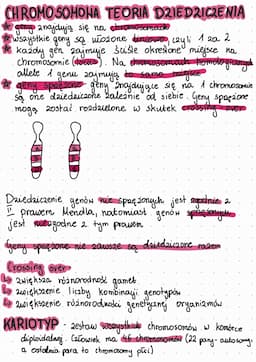 CHROMOSOMOWA TEORIA DZIEDZICZENIA
★ geny znajdują się na chromosomach
★ wszystkie geny są ułożone liniowo, czyli 1 za 2
★ każdy gen zajmuje ściśle określone miejsce na
chromosomie (locus). Na chromosomach homologicznych
allele 1 genu zajmują to samo miejsce
★ geny sprzężone geny znajdujące się na 1 chromosomie
są one dziedziczone zależnie od siebie. Geny sprzężone
mogą zostać rozdzielone w skutek crossing over
Dziedziczenie genów nie sprzężonych jest zgodnie z
II prawem Mendla, natomiast genów sprzężonych
jest niezgodne z tym prawem
Geny sprzężone nie zawsze są dziedziczone razem
Crossing over
↳ zwiększa różnorodność gamet
↳ zwiększenie liczby kombinacji genotypów
↳ zwiększenie różnorodności genetycznej organizmów
KARIOTYP - zestaw wszystkich chromosomów w komórce
diploidalnej. Człowiek ma 46 chromosomów (22 pary-autosomy,
a ostatnia para to chromosomy płci)